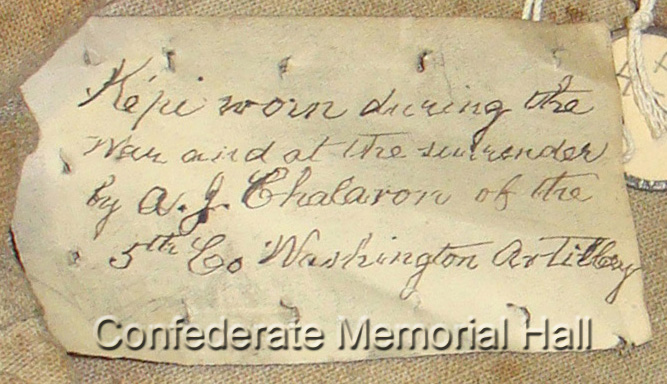 Képi worn during the
War and at the surrender
by A. J. Chalaron of the
5th Co Washington Artillery
Confederate Memorial Hall